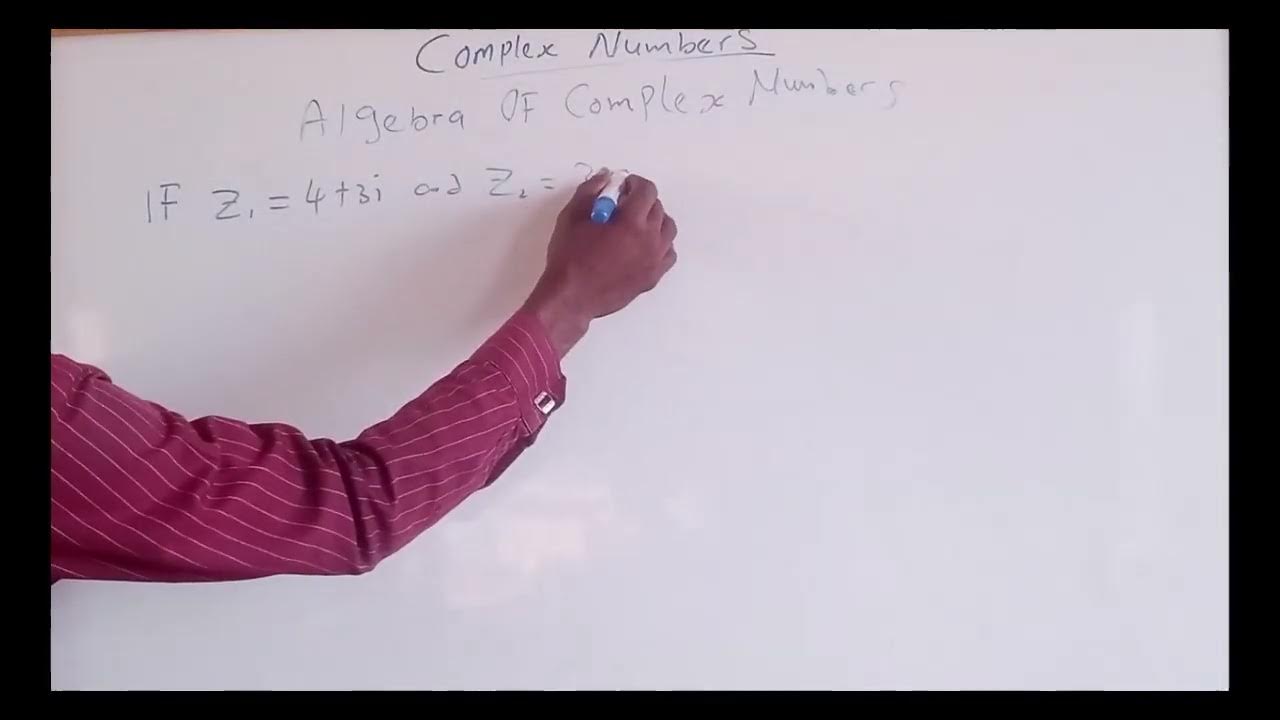 Complex Numbers
Algebra OF Complex Numbers
IF Z₁ = 4+3i and Z₂ =